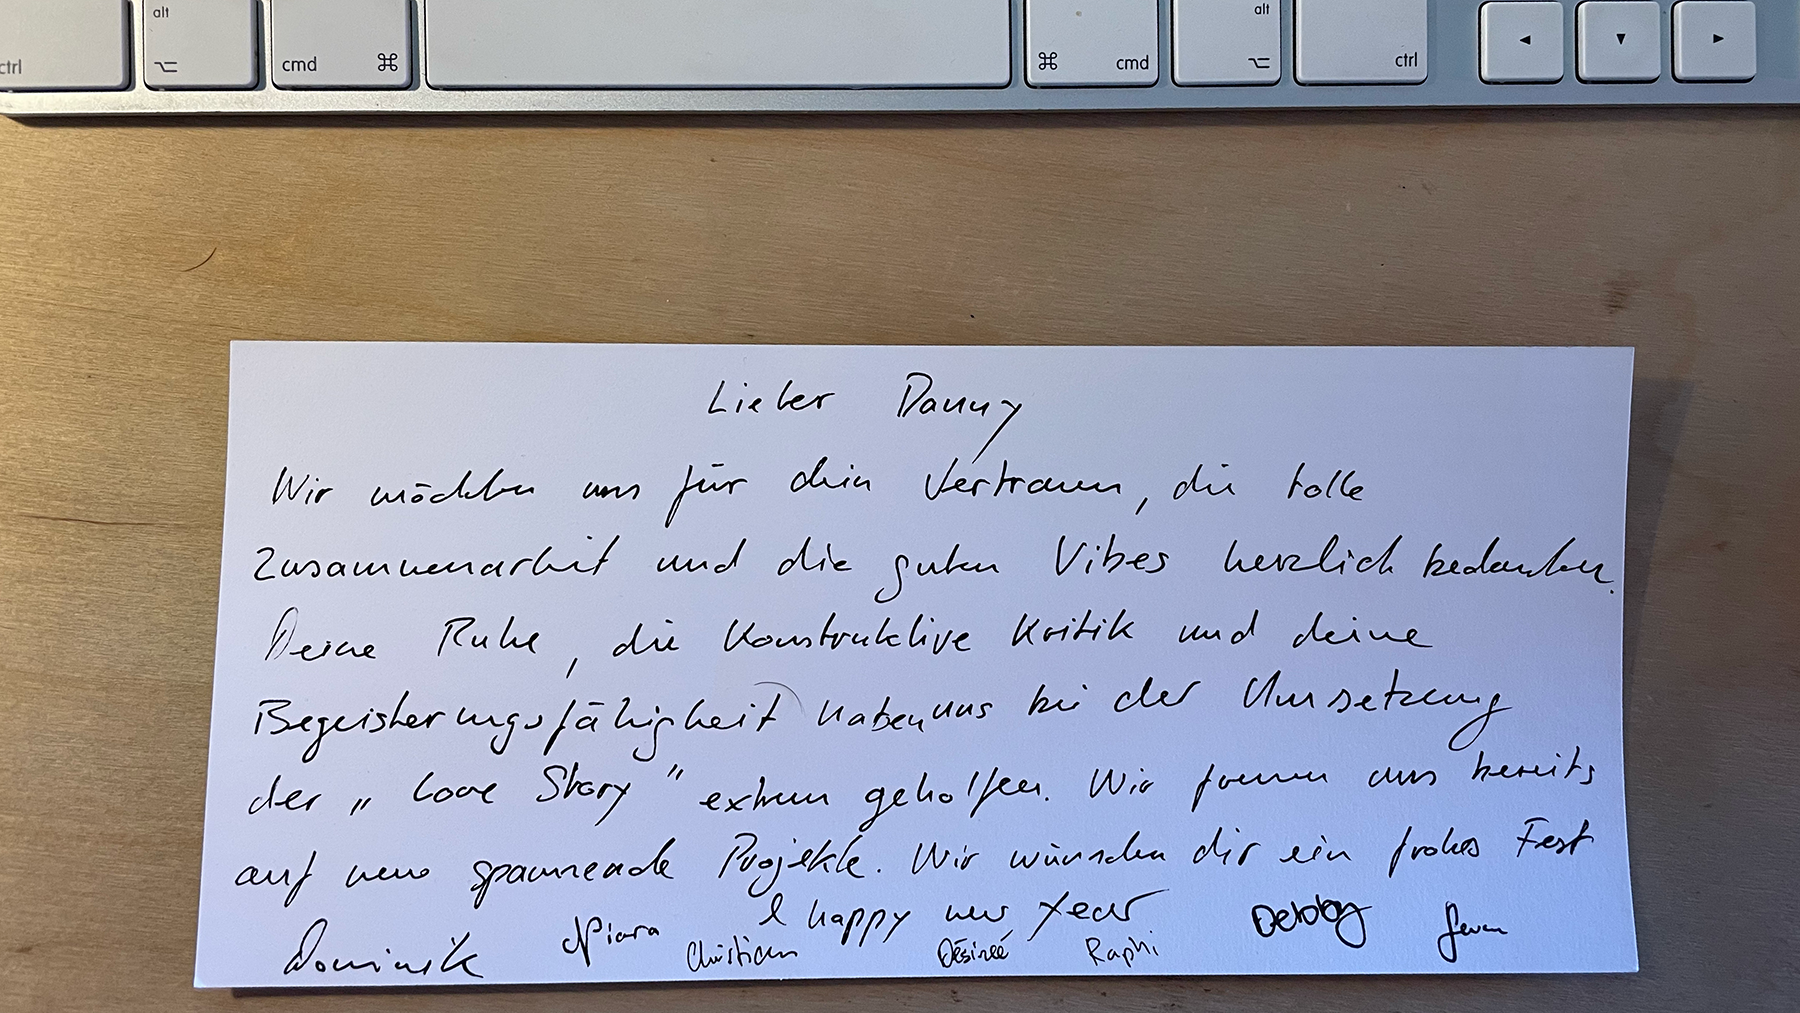 alt alt
ctrl cmd ⌘ ⌘ cmd ctrl
Lieber Danny
Wir möchten uns für dein Vertrauen, die tolle
Zusammenarbeit und die guten Vibes herzlich bedanken.
Deine Ruhe, die konstruktive Kritik und deine
Begeisterungsfähigkeit haben uns bei der Umsetzung
der „Love Story" extrem geholfen. Wir freuen uns bereits
auf neue spannende Projekte. Wir wünschen dir ein frohes Fest
& happy new Year
Dominik Christian Désireé Raphi Debby